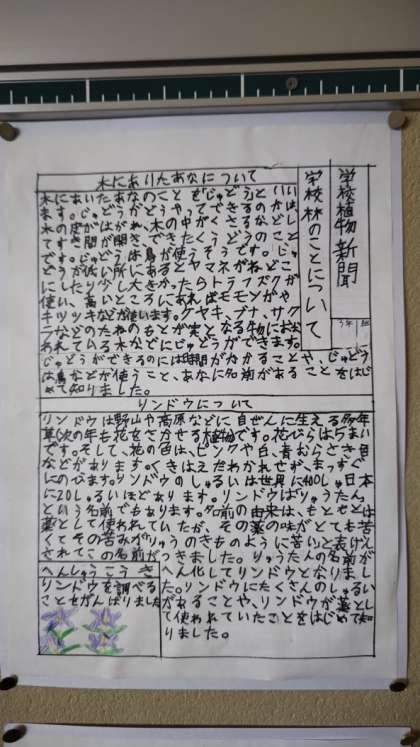 学校植物新聞
学校林のことについて
5年 組
木にありたあなについて
木にあいたあなのことをじゅどうといい
ます。じゅどうがどうやってできるのかは
木の皮がはがれ、木の中がくさるなどし
てすき間が開き、できたくうどうのこと
です。じゅどうは鳥が使うそうです。じゅ
どうが低い所にあるとヤマネがねどこ
にしたり少し大きかったらトラフズクが
使い、高いところにあればモモンガや
キツツキなどが使います。ケヤキ、ブナ、サク
ラなどのたねのもとが実となる物におお
われている木などにじゅどうができます。
じゅどうができるのには時間がかかることや、じゅどう
は鳥などが使うこと、あなに名前があることをはじ
めて知りました。
リンドウについて
リンドウは野山や高原などに自ぜんに生える多年
草次の年も花をさかせる植物です。花びらは5まい
です。そして、花の色は、ピンクや白、青むらさき色
などがあります。くきはえだわかれせず、まっすぐ
にのびます。リンドウのしゅるいは世界に400しゅ日本
に20しゅるいほどあります。リンドウはりゅうたん
という名前でもあります。名前の由来は、もともとは
薬として使われていたが、その薬の味がとても苦
くてその苦みがりゅうのきものように苦いと表げん
されてこの名前がつきました。りゅうたんの名前が
へん化してリンドウとなりまし
た。リンドウにたくさんのしゅるい
があることや、リンドウが薬とし
て使われていたことをはじめて知
りました。
へんしゅうこうき
リンドウを調べる
ことをがんばりました